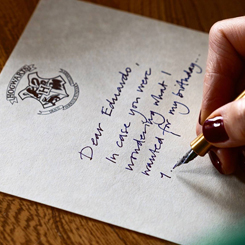 HOGWARTS
Dear Eduardo,
In case you were
wondering what I
wanted for my birthday...
1.